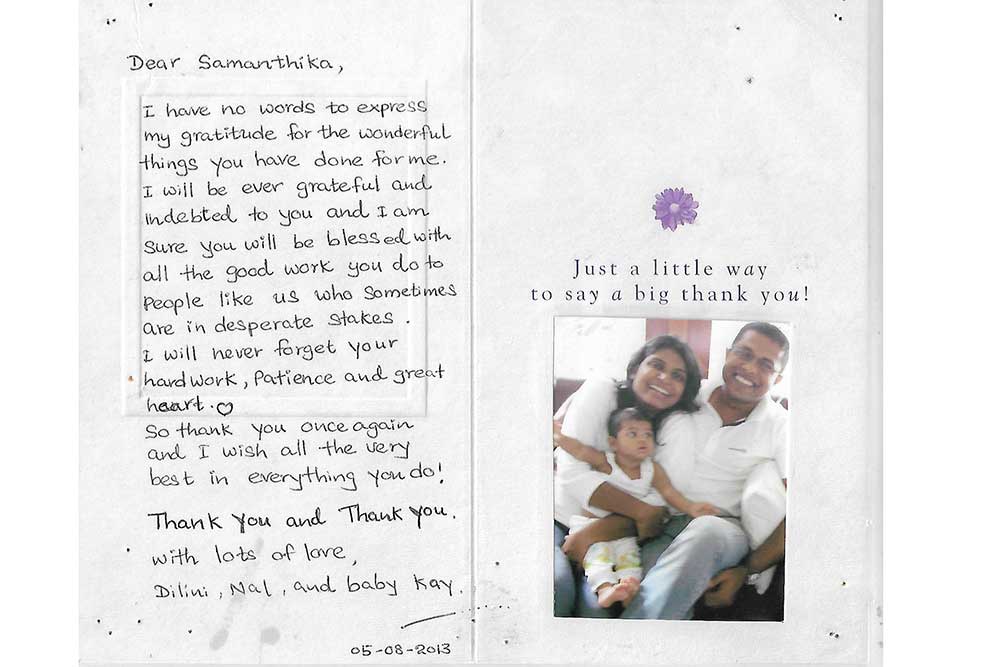 Dear Samanthika,
I have no words to express
my gratitude for the wonderful
things you have done for me.
I will be ever grateful and
indebted to you and I am
sure you will be blessed with
all the good work you do to
people like us who sometimes
are in desperate stakes.
I will never forget your
hardwork, Patience and great
heart. ♡
So thank you once again
and I wish all the very
best in everything you do!
Thank you and Thank you.
with lots of love,
Dilini, Nal, and baby Kay.
05-08-2013
Just a little way
to say a big thank you!